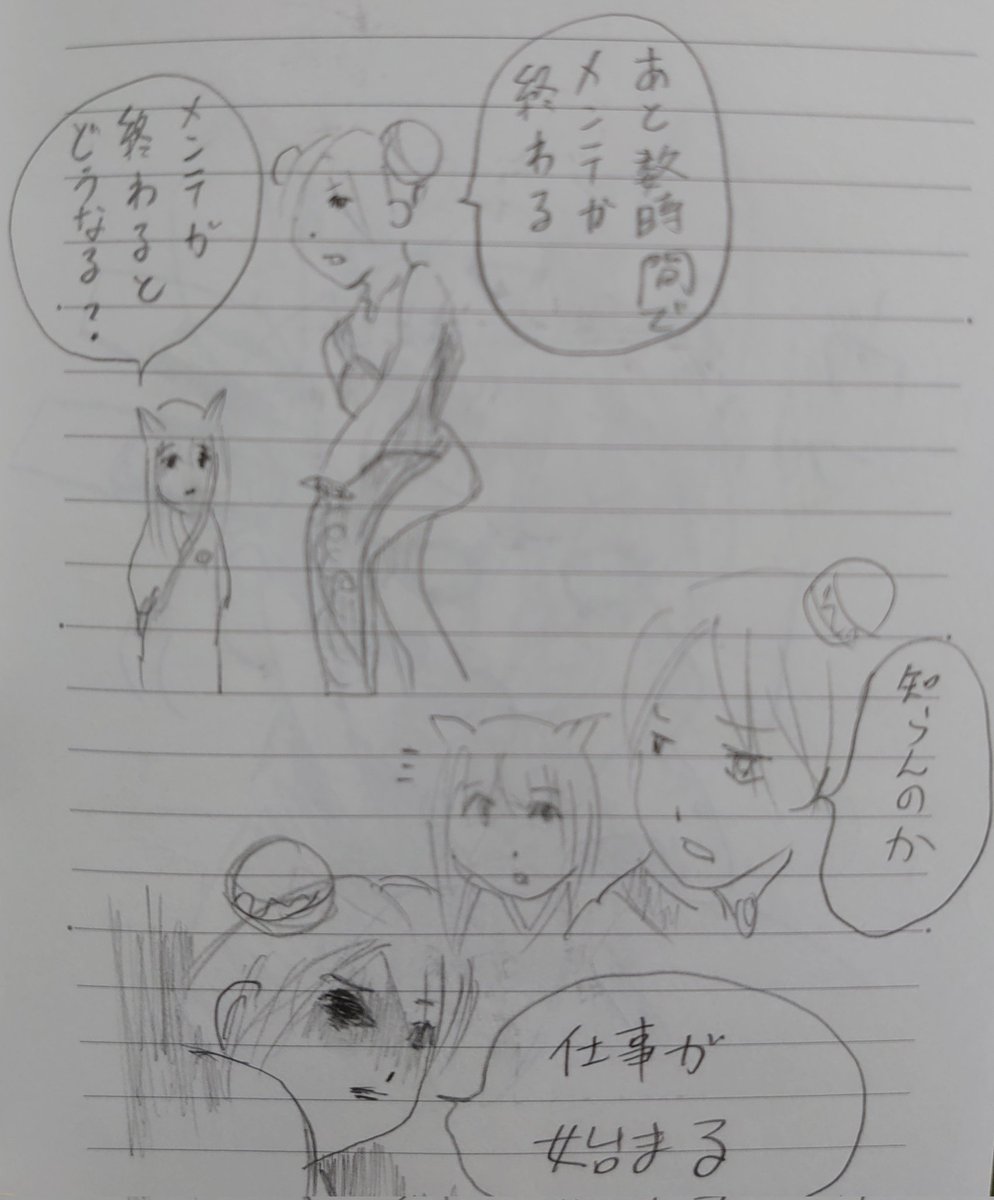 あと数時間で
メンテが
終わる
メンテが
終わると
どうなる?
知らんのか
仕事が
始まる